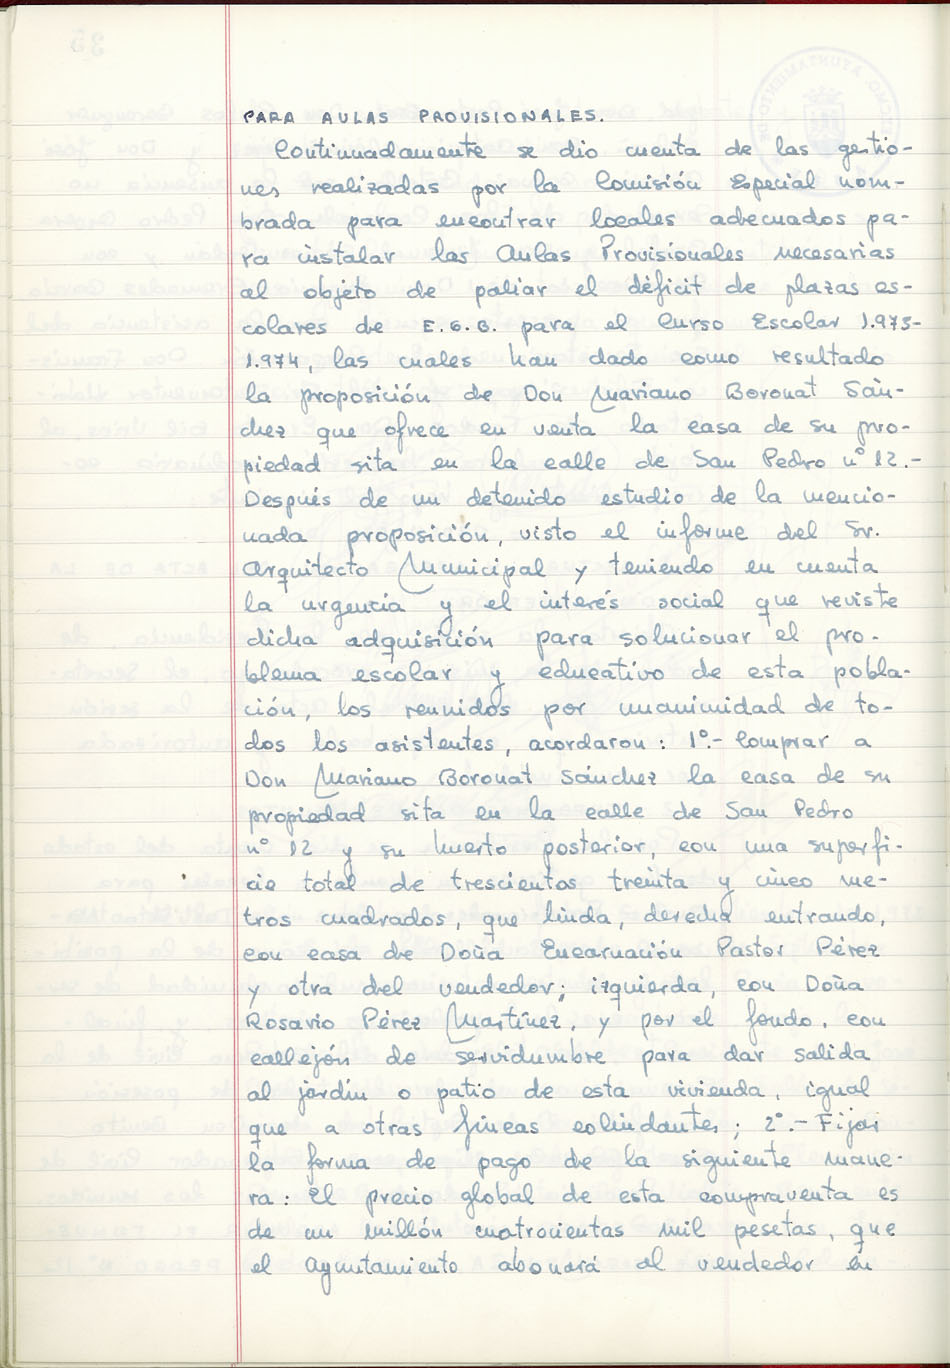 PARA AULAS PROVISIONALES.
Continuadamente se dio cuenta de las gestio-
nes realizadas por la Comisión Especial nom-
brada para encontrar locales adecuados pa-
ra instalar las Aulas Provisionales necesarias
al objeto de paliar el déficit de plazas es-
colares de E.G.B. para el Curso Escolar 1.973-
1.974, las cuales han dado como resultado
la proposición de Don Mariano Boronat Sán-
chez que ofrece en venta la casa de su pro-
piedad sita en la calle de San Pedro nº 12.-
Después de un detenido estudio de la mencio-
nada proposición, visto el informe del Sr.
Arquitecto Municipal y teniendo en cuenta
la urgencia y el interés social que reviste
dicha adquisición para solucionar el pro-
blema escolar y educativo de esta pobla-
ción, los reunidos por unanimidad de to-
dos los asistentes, acordaron: 1º.- Comprar a
Don Mariano Boronat Sánchez la casa de su
propiedad sita en la calle de San Pedro
nº 12 y su huerto posterior, con una superfi-
cie total de trescientos treinta y cinco me-
tros cuadrados, que linda, derecha entrando,
con casa de Doña Encarnación Pastor Pérez
y otra del vendedor; izquierda, con Doña
Rosario Pérez Martínez, y por el fondo, con
callejón de servidumbre para dar salida
al jardín o patio de esta vivienda, igual
que a otras fincas colindantes; 2º.- Fijar
la forma de pago de la siguiente mane-
ra: El precio global de esta compraventa es
de un millón cuatrocientas mil pesetas, que
el Ayuntamiento abonará al vendedor en